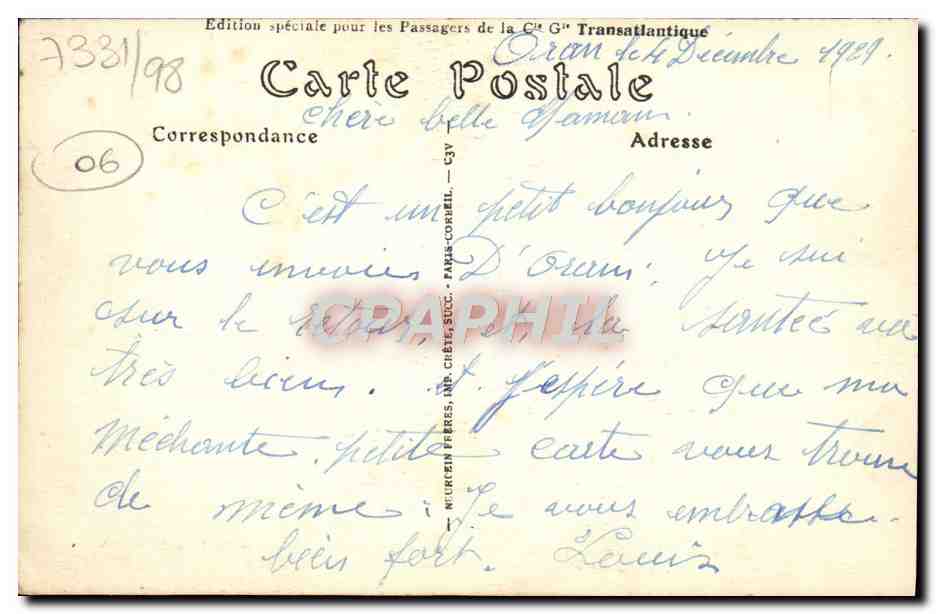 Edition spéciale pour les Passagers de la Cie Gle Transatlantique
7331/98
Oran le 4 Décembre 1921.
Carte Postale
Chère belle Maman.
Correspondance
Adresse
06
C'est un petit bonjour que
vous envoies D'Oran. Je sui
sur le retour, et la santée va
très bien. et J'espère que ma
Méchante petite carte vous trouve
de même : Je vous embrasse
bien fort. Louis
— NEURDEIN FRÈRES, IMP. CRÉTÉ, SUCC. - PARIS-CORBEIL. — C3V —
CPAPHIL